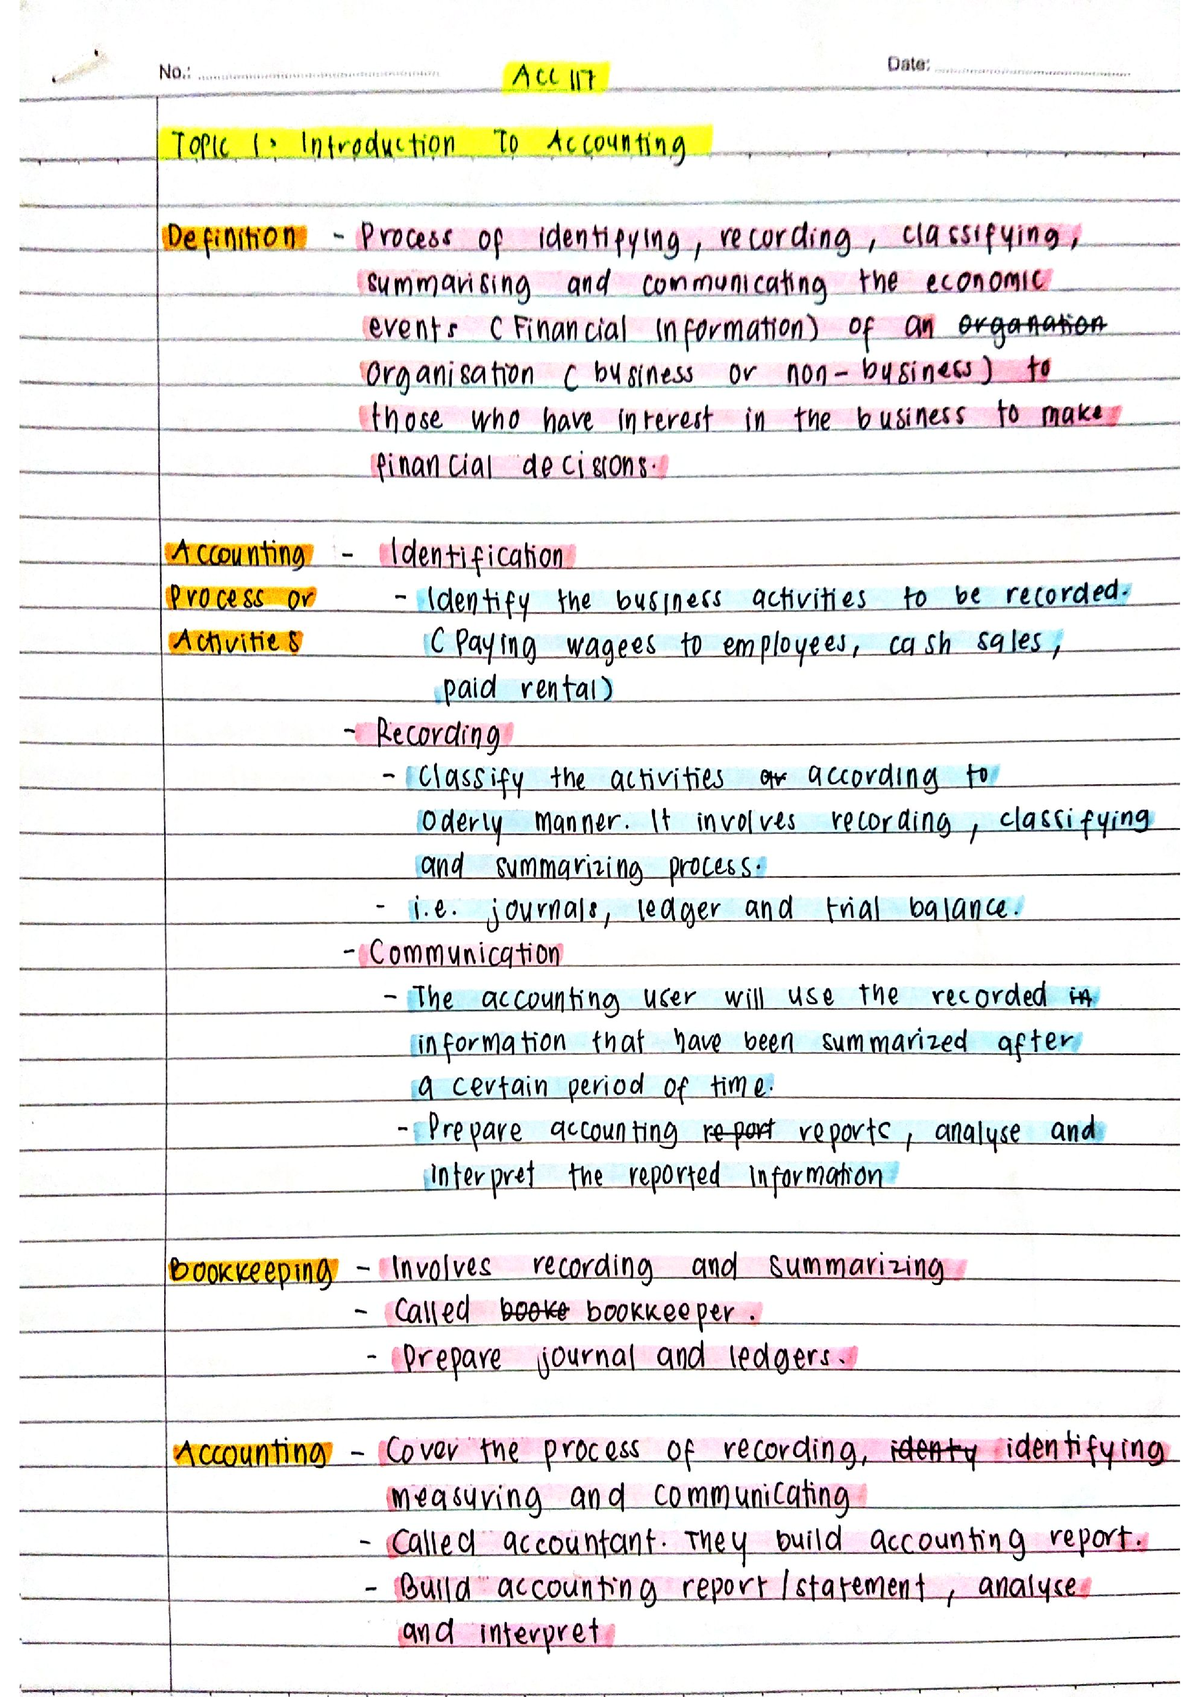 No.:
ACC 117
Date:
TOPIC 1: Introduction To Accounting
Definition - Process of identifying, recording, classifying,
summarising and communicating the economic
events (Financial Information) of an organation
Organisation (business or non-business) to
those who have interest in the business to make
financial decisions.
Accounting - Identification
Process or - Identify the business activities to be recorded.
Activities (Paying wagees to employees, cash sales,
paid rental)
- Recording
- Classify the activities ar according to
Oderly manner. It involves recording, classifying
and summarizing process.
- i.e. journals, ledger and trial balance.
- Communication
- The accounting user will use the recorded in
information that have been summarized after
a certain period of time.
- Prepare accounting report reports, analyse and
interpret the reported information
Bookkeeping - Involves recording and summarizing
- Called booke bookkeeper.
- Prepare journal and ledgers.
Accounting - Cover the process of recording, identy identifying
measuring and communicating
- Called accountant. They build accounting report.
- Build accounting report/statement, analyse
and interpret